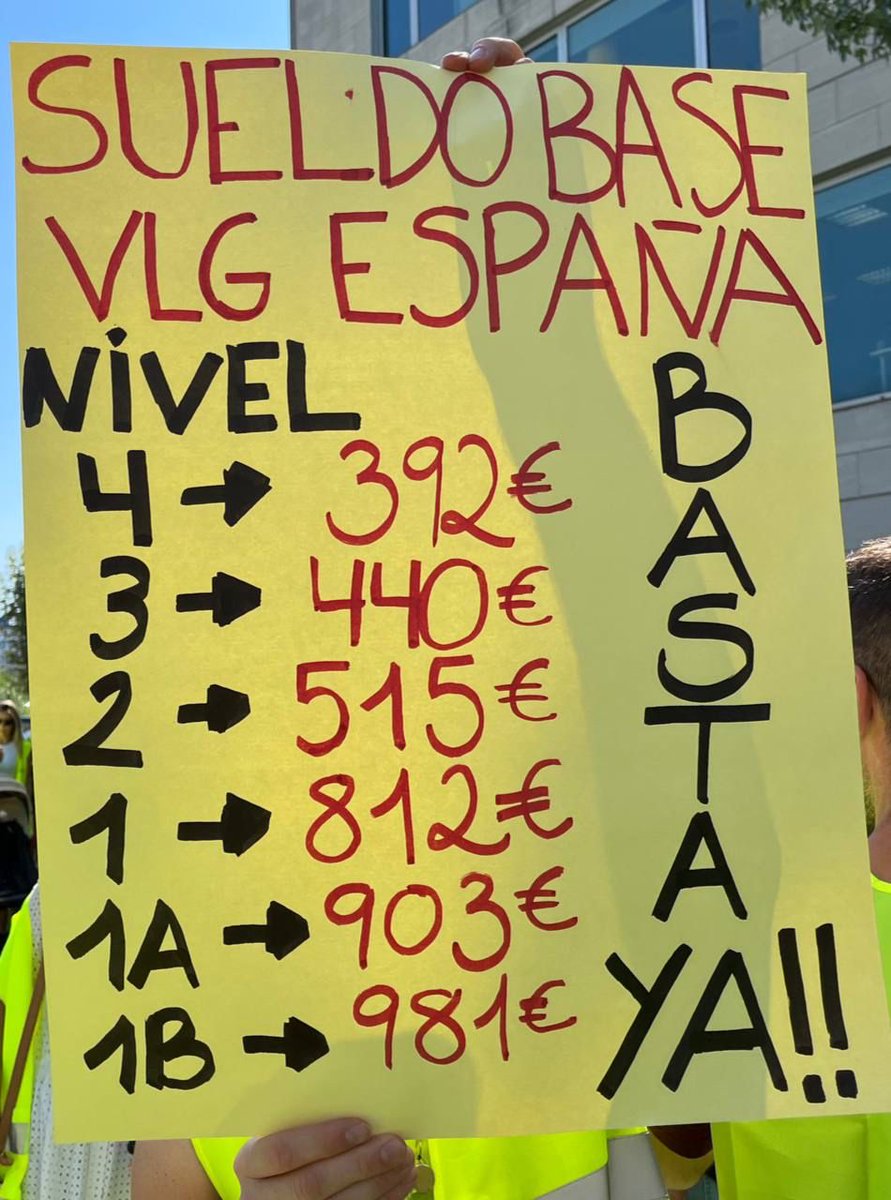 SUELDO BASE
VLG ESPAÑA
NIVEL
4 → 392€
3 → 440€
2 → 515€
1 → 812€
1A → 903€
1B → 981€
BASTA
YA!!